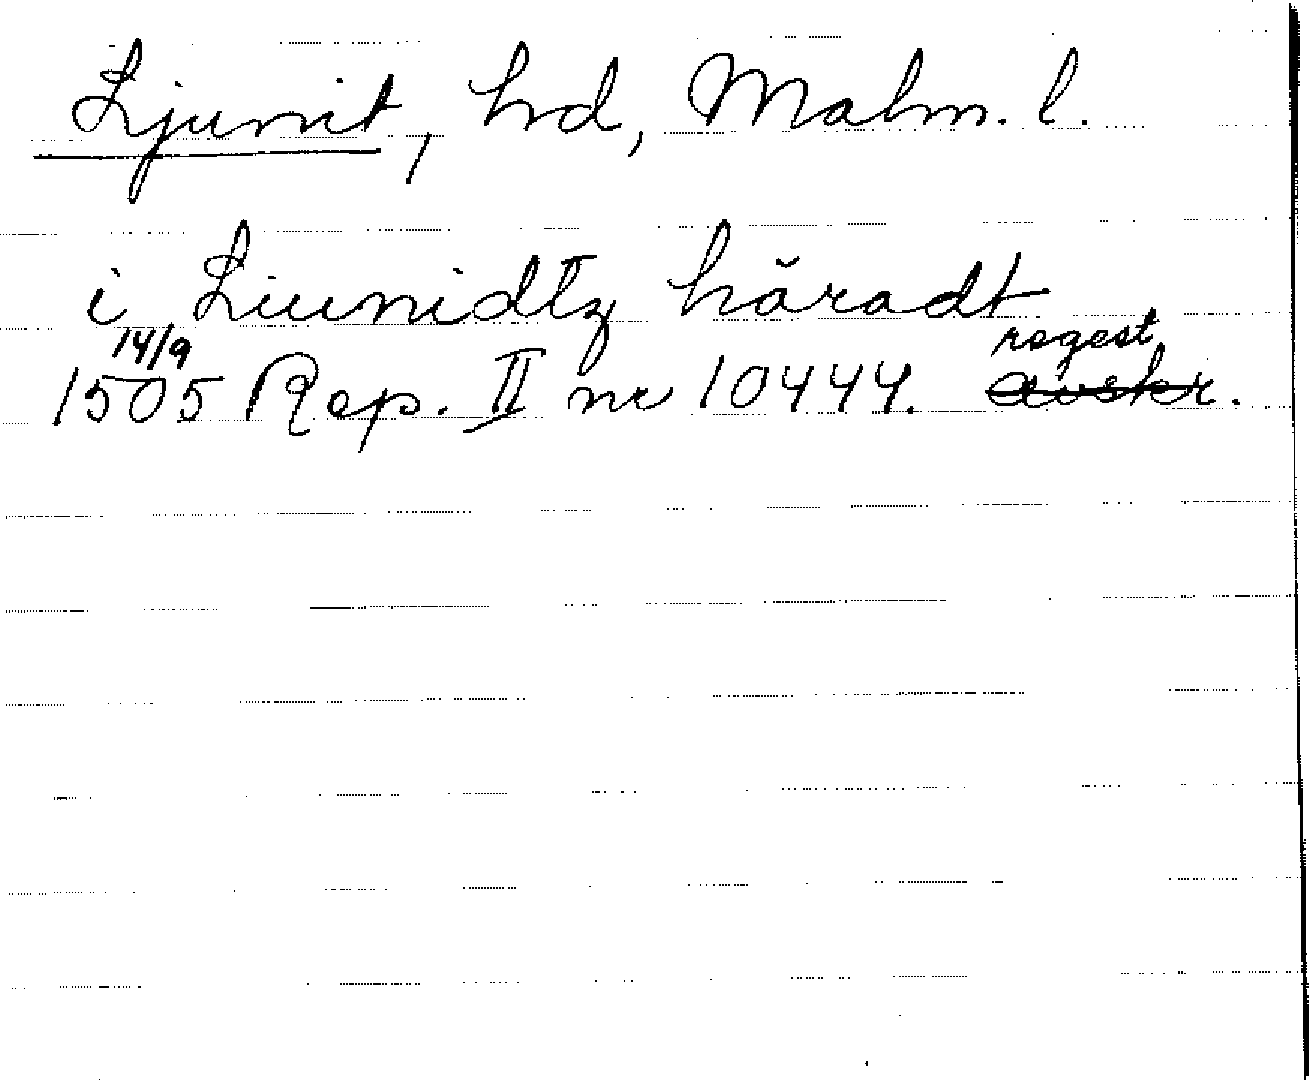 Ljunit, hd, Malm. l.
i Liunidtz häradt
14/9 regest
1505 Rep. II nr 10444. avskr.